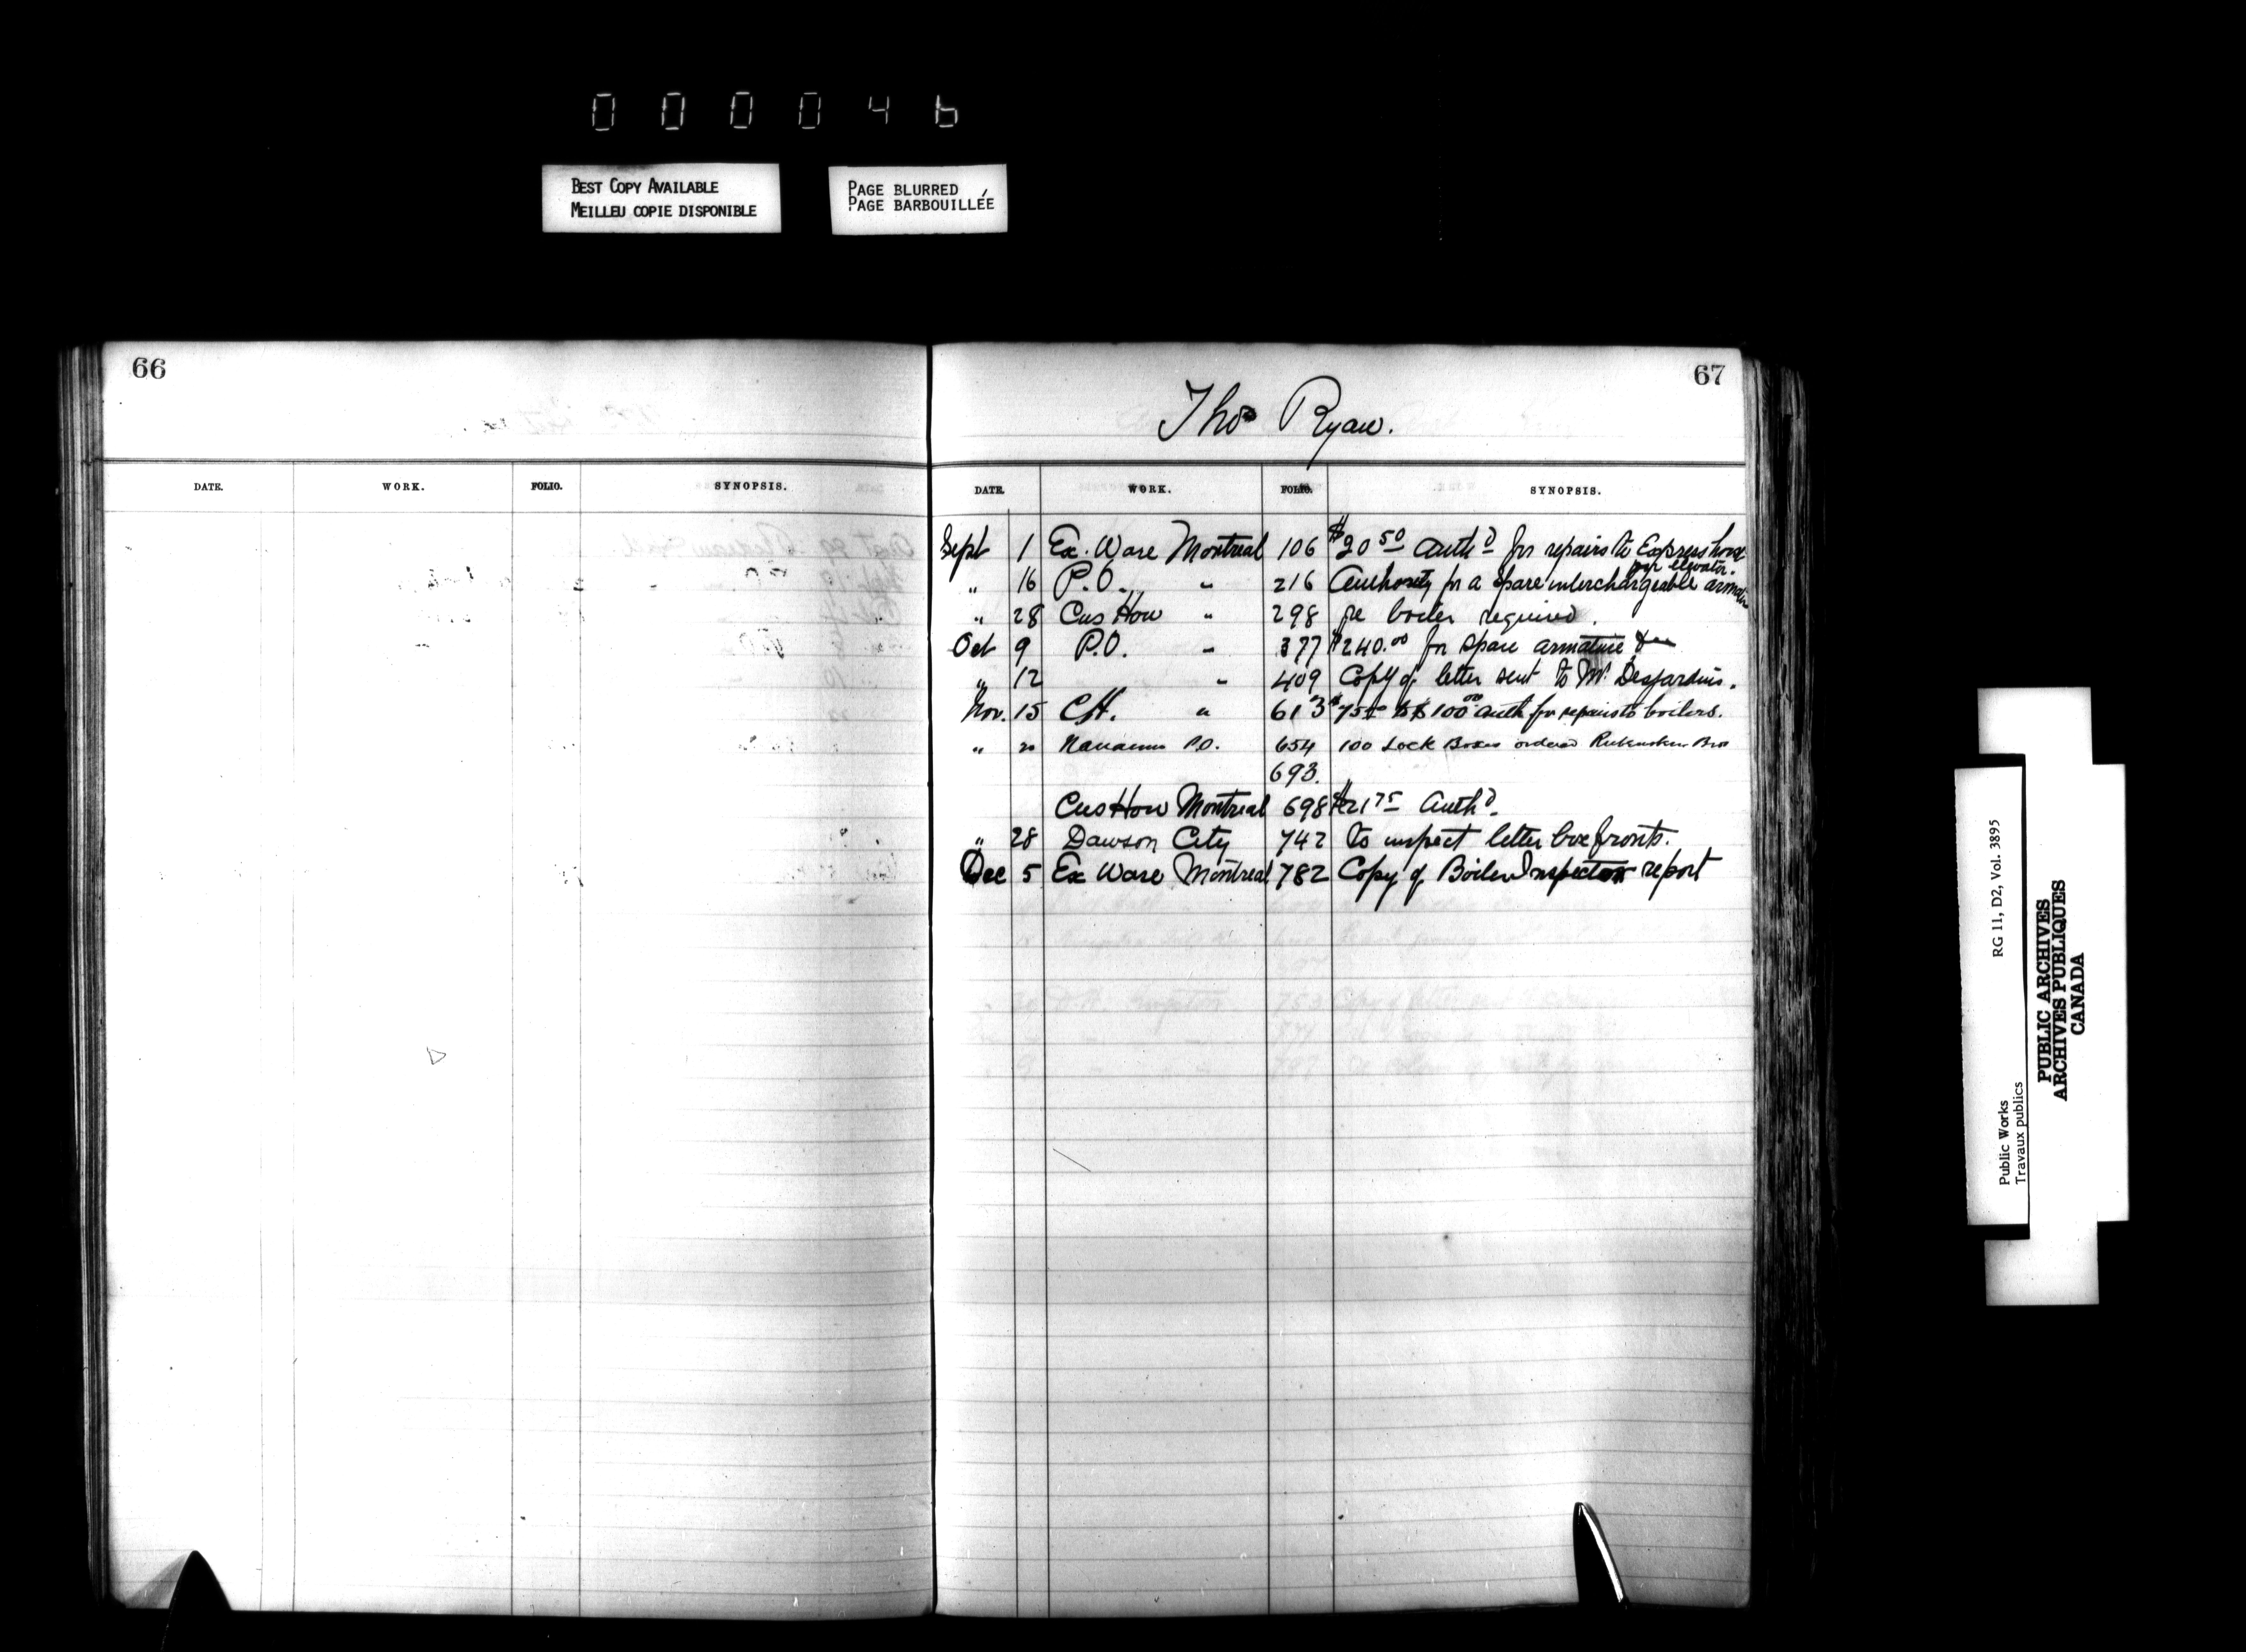 000046
BEST COPY AVAILABLE
MEILLEU COPIE DISPONIBLE
PAGE BLURRED
PAGE BARBOUILLÉE
66
DATE. WORK. FOLIO. SYNOPSIS.
67
Thos Ryan.
DATE. WORK. FOLIO. SYNOPSIS.
Sept 1 Ex. Ware Montreal 106 $20 50 Auth'd for repairs to Express hoist
or elevator.
" 16 P.O. " 216 Authority for a spare interchargeable armature
" 28 Cus Hou " 298 re boiler required.
Oct 9 P.O. " 377 $240.00 for spare armature &
" 12 " 409 Copy of letter sent to Mr. Desjardins.
Nov. 15 C.H. " 613 $75 to $100 00 auth for repairs to boilers.
" 20 Nanaimo P.O. 654 100 Lock Boxes ordered Bros
693.
Cus Hou Montreal 698 $21 75 Auth'd.
" 28 Dawson City 742 to inspect letter box fronts.
Dec 5 Ex Ware Montreal 782 Copy of Boiler Inspectors report
Public Works
Travaux publics
RG 11, D2, Vol. 3895
PUBLIC ARCHIVES
ARCHIVES PUBLIQUES
CANADA